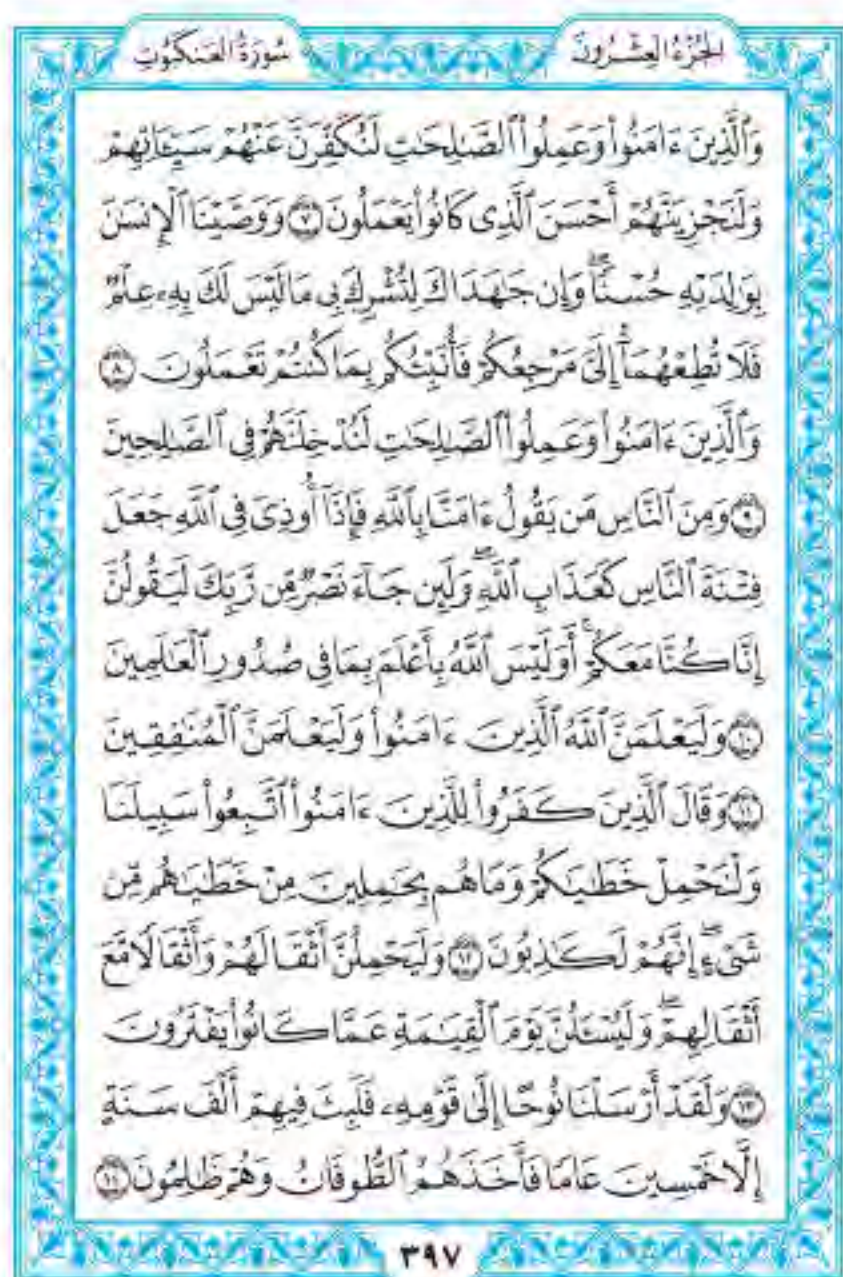 سُورَةُ العَنكَبُوتِ
الجُزْءُ العِشْرُونَ
وَٱلَّذِينَ ءَامَنُوا۟ وَعَمِلُوا۟ ٱلصَّـٰلِحَـٰتِ لَنُكَفِّرَنَّ عَنْهُمْ سَيِّـَٔاتِهِمْ
وَلَنَجْزِيَنَّهُمْ أَحْسَنَ ٱلَّذِى كَانُوا۟ يَعْمَلُونَ ٧ وَوَصَّيْنَا ٱلْإِنسَـٰنَ
بِوَٰلِدَيْهِ حُسْنًا ۖ وَإِن جَـٰهَدَاكَ لِتُشْرِكَ بِى مَا لَيْسَ لَكَ بِهِۦ عِلْمٌ
فَلَا تُطِعْهُمَآ ۚ إِلَىَّ مَرْجِعُكُمْ فَأُنَبِّئُكُم بِمَا كُنتُمْ تَعْمَلُونَ ٨
وَٱلَّذِينَ ءَامَنُوا۟ وَعَمِلُوا۟ ٱلصَّـٰلِحَـٰتِ لَنُدْخِلَنَّهُمْ فِى ٱلصَّـٰلِحِينَ
٩ وَمِنَ ٱلنَّاسِ مَن يَقُولُ ءَامَنَّا بِٱللَّهِ فَإِذَآ أُوذِىَ فِى ٱللَّهِ جَعَلَ
فِتْنَةَ ٱلنَّاسِ كَعَذَابِ ٱللَّهِ ۖ وَلَئِن جَآءَ نَصْرٌ مِّن رَّبِّكَ لَيَقُولُنَّ
إِنَّا كُنَّا مَعَكُمْ ۚ أَوَلَيْسَ ٱللَّهُ بِأَعْلَمَ بِمَا فِى صُدُورِ ٱلْعَـٰلَمِينَ
١٠ وَلَيَعْلَمَنَّ ٱللَّهُ ٱلَّذِينَ ءَامَنُوا۟ وَلَيَعْلَمَنَّ ٱلْمُنَـٰفِقِينَ
١١ وَقَالَ ٱلَّذِينَ كَفَرُوا۟ لِلَّذِينَ ءَامَنُوا۟ ٱتَّبِعُوا۟ سَبِيلَنَا
وَلْنَحْمِلْ خَطَـٰيَـٰكُمْ وَمَا هُم بِحَـٰمِلِينَ مِنْ خَطَـٰيَـٰهُم مِّن
شَىْءٍ ۖ إِنَّهُمْ لَكَـٰذِبُونَ ١٢ وَلَيَحْمِلُنَّ أَثْقَالَهُمْ وَأَثْقَالًا مَّعَ
أَثْقَالِهِمْ ۖ وَلَيُسْـَٔلُنَّ يَوْمَ ٱلْقِيَـٰمَةِ عَمَّا كَانُوا۟ يَفْتَرُونَ
١٣ وَلَقَدْ أَرْسَلْنَا نُوحًا إِلَىٰ قَوْمِهِۦ فَلَبِثَ فِيهِمْ أَلْفَ سَنَةٍ
إِلَّا خَمْسِينَ عَامًا فَأَخَذَهُمُ ٱلطُّوفَانُ وَهُمْ ظَـٰلِمُونَ ١٤
٣٩٧